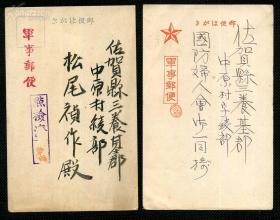 郵便はがき
佐賀縣三養基郡
中原村綾部
松尾禎作殿
軍事郵便
郵便はがき
佐賀縣三養基郡
中原村字綾部
國防婦人會
一同様
軍事郵便